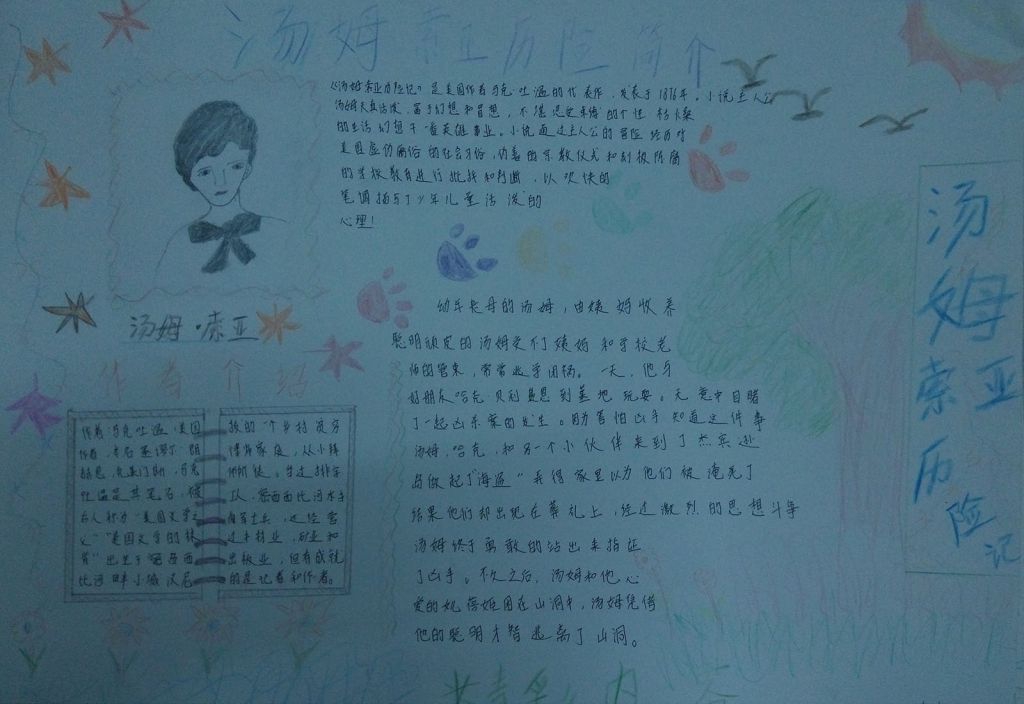 汤姆索亚历险简介
《汤姆索亚历险记》是美国作者马克·吐温的代表作,发表于1876年。小说主人公
汤姆天真活泼、富于幻想和冒险,不堪忍受束缚的个性 枯燥
的生活 幻想干一番英雄事业。小说通过主人公的冒险 经历对
美国虚伪庸俗的社会习俗,伪善的宗教仪式和刻板陈腐
的学校教育进行批判和 ,以欢快的
笔调描写了少年儿童活泼的
心理!
汤姆·索亚
作者介绍
作者马克吐温,美国
作者,
马克
吐温是其笔名,被
后人称为"美国文学之
父""美国文学的林
肯"出生于密西西
比河畔小城汉尼
拔的一个乡村贫穷
律师家庭,从小拜
师学徒。当过排字
工人,密西西比河水手
南军士兵,还经营
过木材业,矿业和
出版业,但有成就
的是记者和作者。
幼年丧母的汤姆,由姨妈收养
聪明顽皮的汤姆受不了姨妈和学校老
师的管束,常常逃学闯祸。一天,他与
好朋友哈克贝利 到墓地玩耍。无意中目睹
了一起凶杀案的发生。因害怕凶手知道这件事
汤姆,哈克,和另一个小伙伴来到了杰克逊
岛做起了"海盗"弄得家里以为他们被淹死了
结果他们却出现在葬礼上,经过激烈的思想斗争
汤姆终于勇敢的站出来指证
了凶手。不久之后,汤姆和他心
爱的 困在山洞中,汤姆凭借
他的聪明才智逃离了山洞。
汤姆索亚历险记